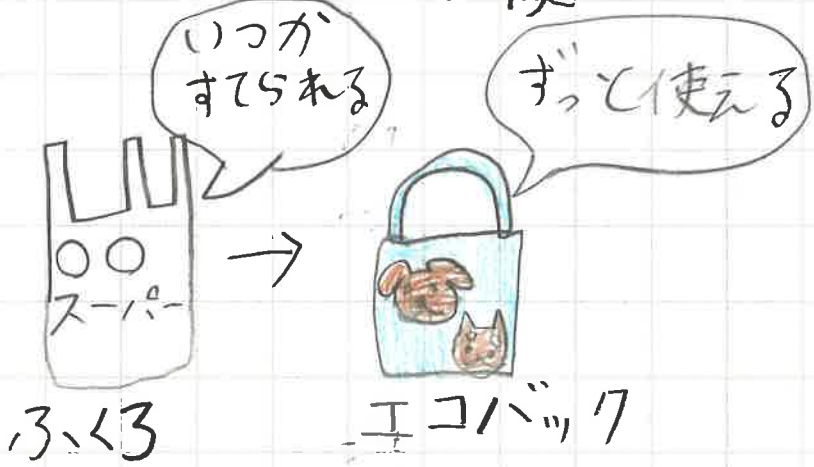 いつか
すてられる
ずっと使える
○○
スーパー
ふくろ
エコバック